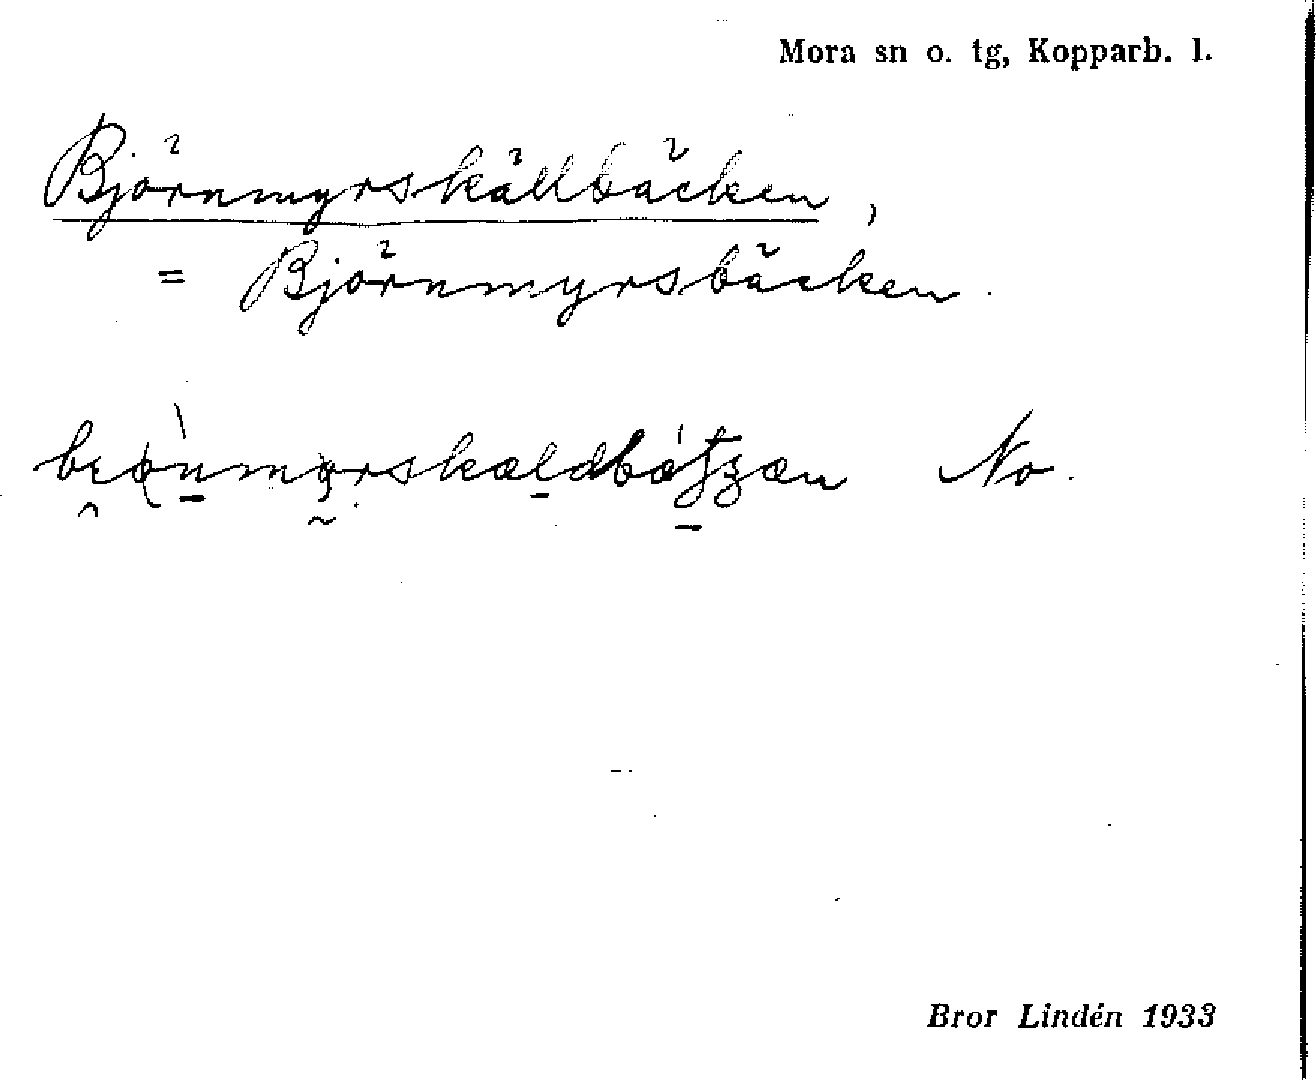 Mora sn o. tg, Kopparb. l.
Björnmyrskällbäcken,
= Björnmyrsbäcken.
No.
Bror Lindén 1933